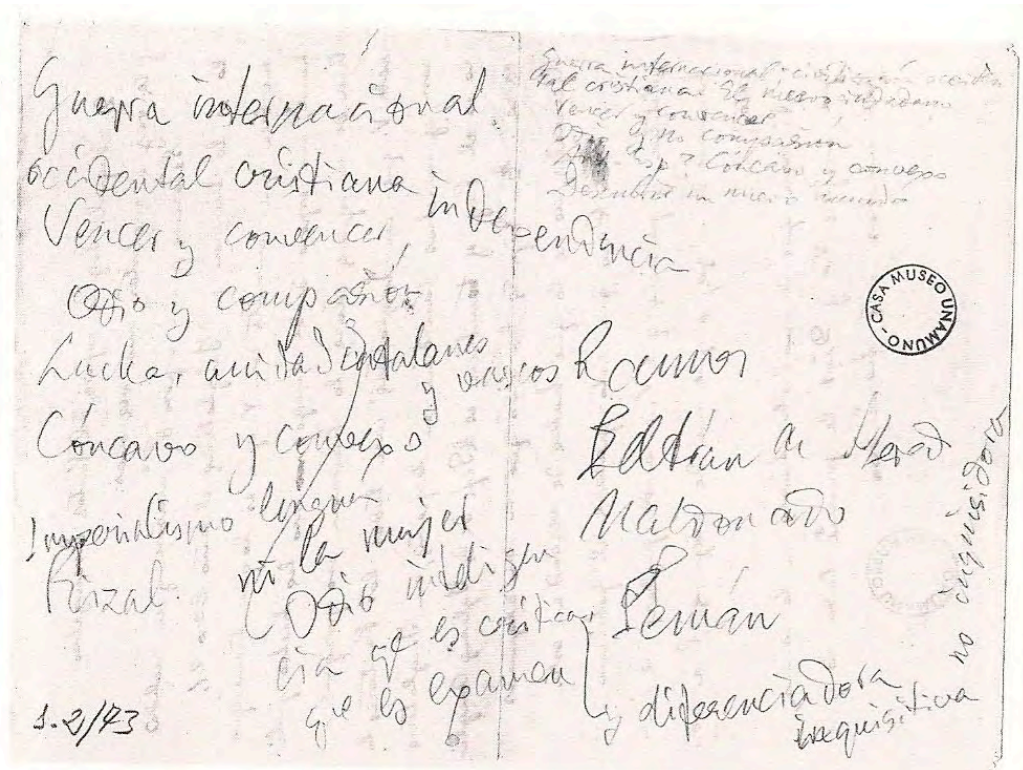 Guerra internacional.
occidental cristiana, independencia
Vencer y convencer,
Odio y compasión
Lucha, unidad catalanes
y vascos
Cóncavo y convexo
Imperialismo lengua
Rizal. ni la mujer
Odio inteligen
cia que es crítica
que es examen
y diferenciadora
inquisitiva
no inquisidora
Guerra internacional civilización occiden
tal cristiana
Vencer y convencer
Odio y no compasión
Cóncavo y convexo
Descubrir un nuevo mundo
CASA MUSEO UNAMUNO
Ramos
Beltrán de Hered
Maldonado
Pemán
1-2/73